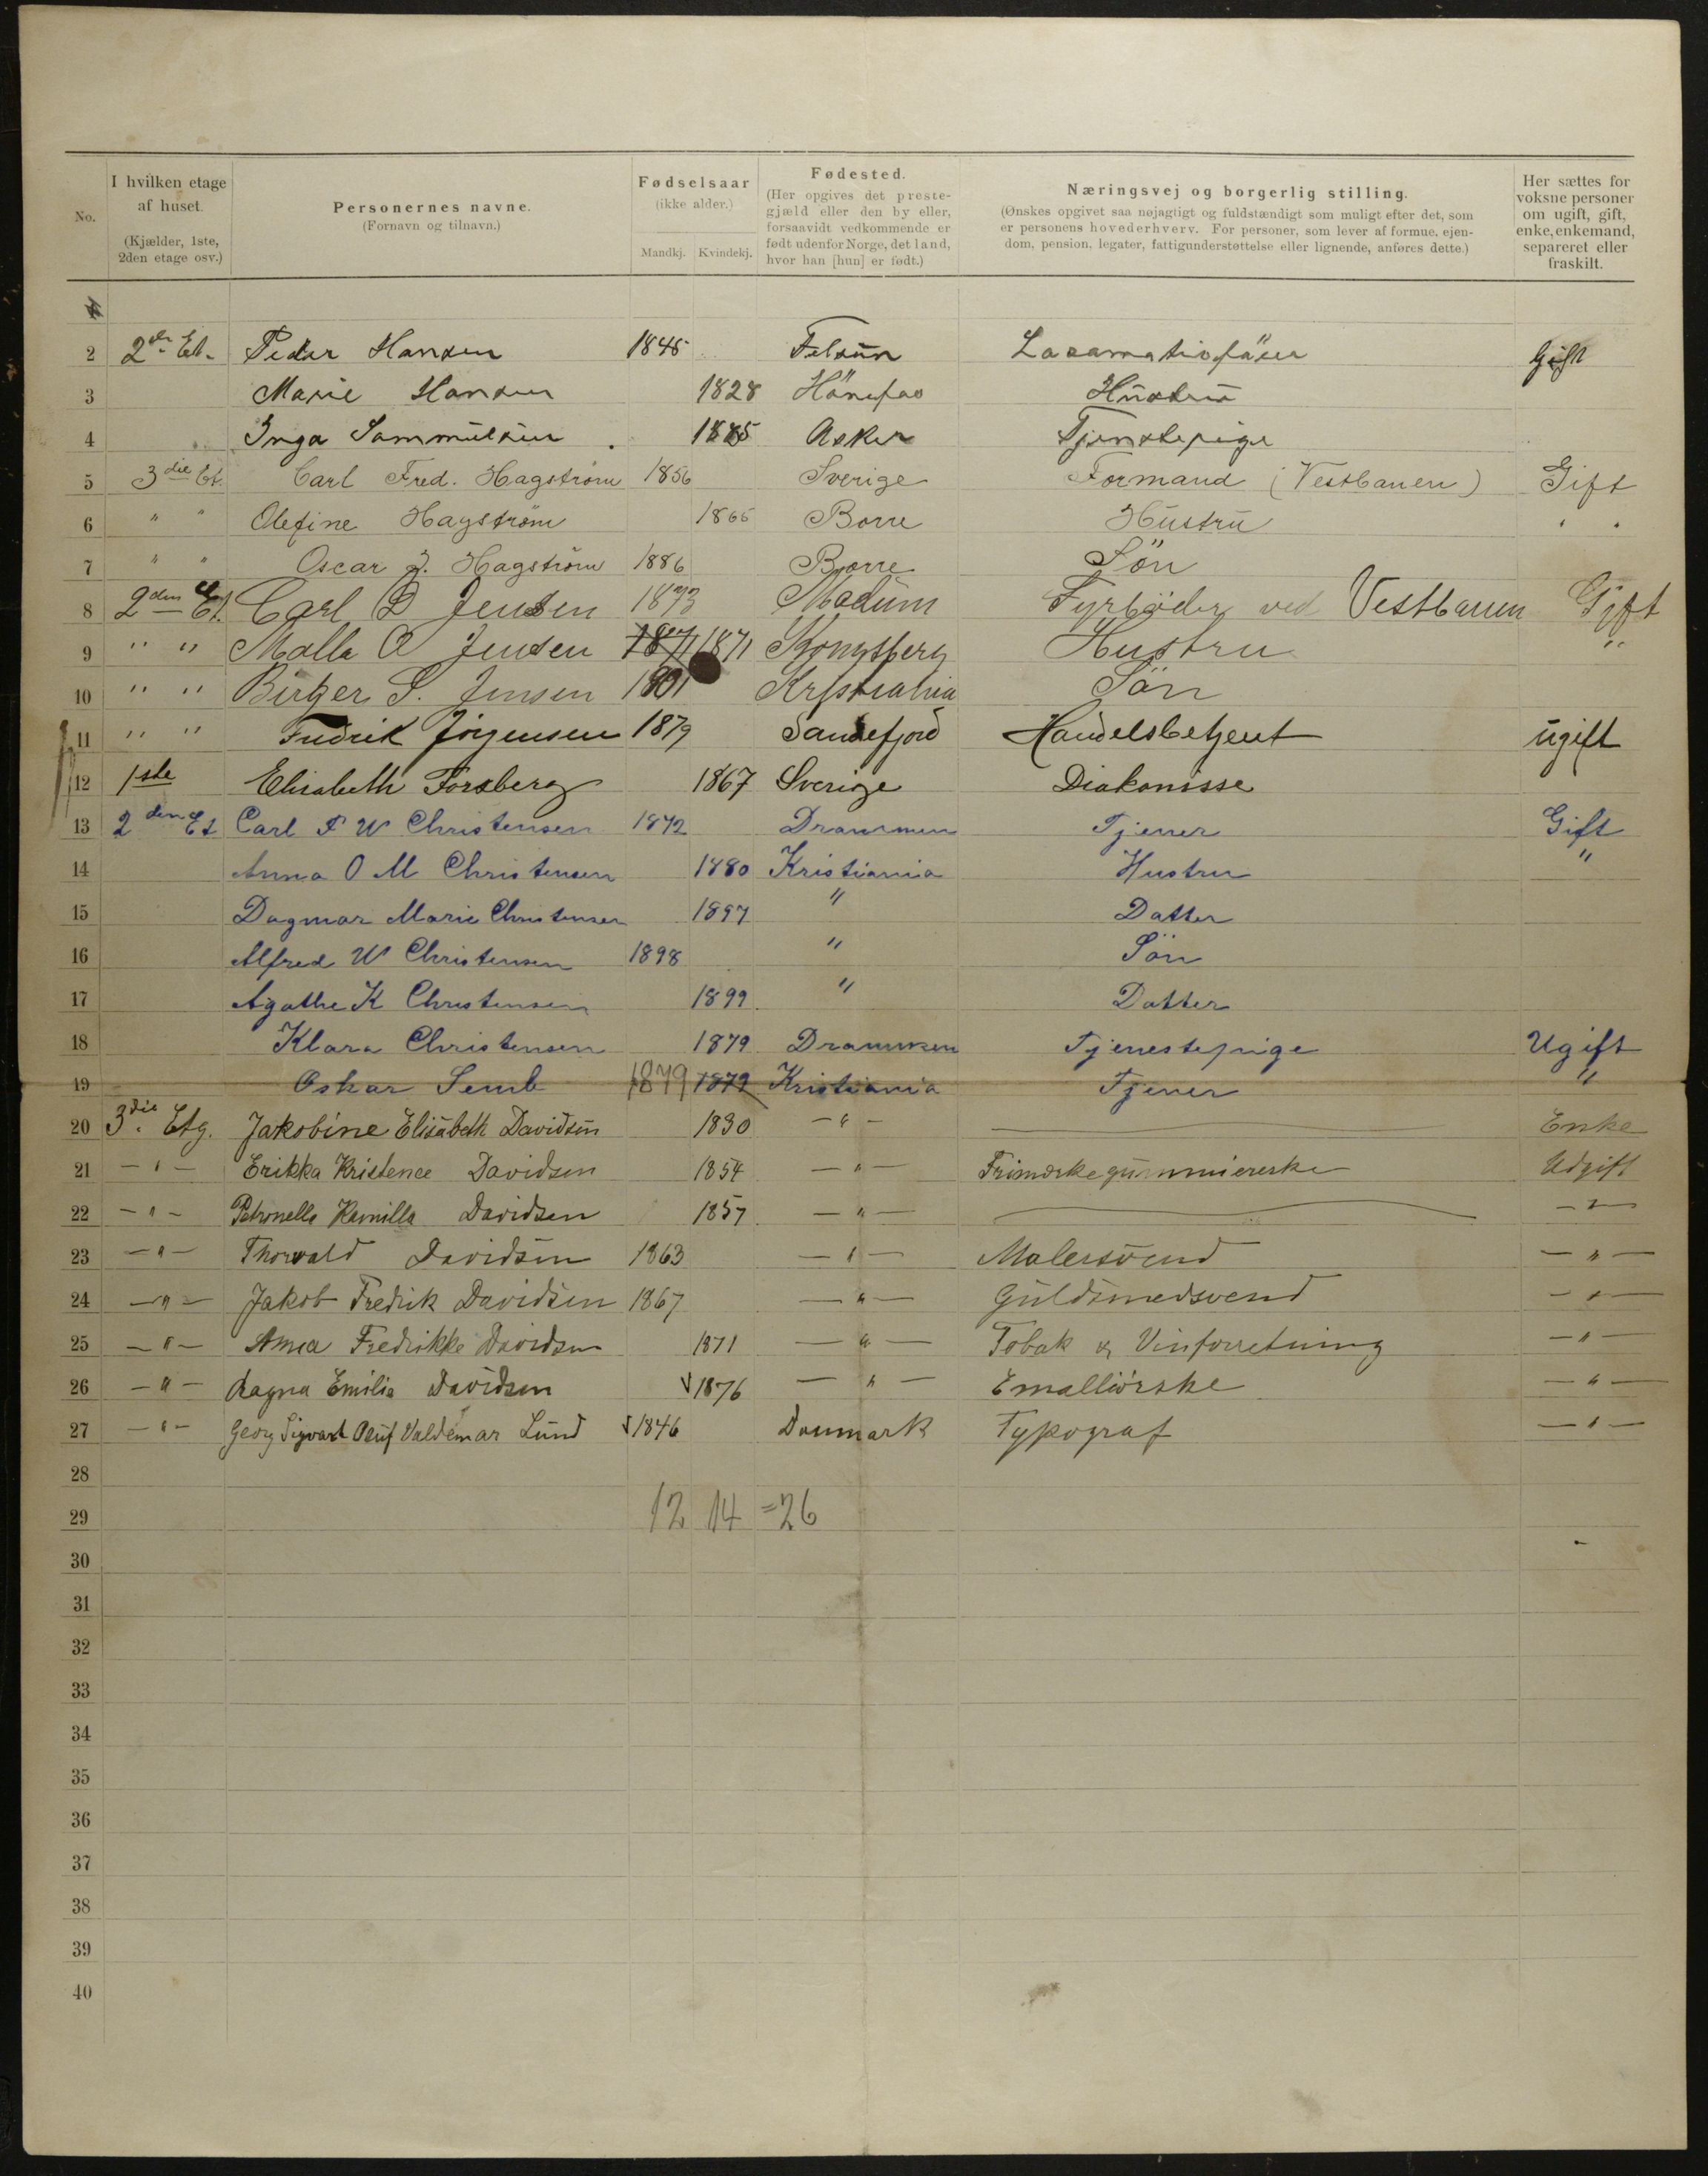 No.
I hvilken etage af huset. (Kjælder, 1ste, 2den etage osv.)
Personernes navne. (Fornavn og tilnavn.)
Fødselsaar (ikke alder.) Mandkj. Kvindekj.
Fødested. (Her opgives det prestegjæld eller den by eller, forsaavidt vedkommende er født udenfor Norge, det land, hvor han [hun] er født.)
Næringsvej og borgerlig stilling. (Ønskes opgivet saa nøjagtigt og fuldstændigt som muligt efter det, som er personens hovederhverv. For personer, som lever af formue, ejendom, pension, legater, fattigunderstøttelse eller lignende, anføres dette.)
Her sættes for voksne personer om ugift, gift, enke, enkemand, separeret eller fraskilt.
2 2den Et. Peder Hansen 1845 Gift
3 Marie Hansen 1828 Hönefos Hustru
4 Inga Sammuelsen 1885 Asker Tjenstepige
5 3die Et. Carl Fred. Hagström 1856 Sverige Formand (Vestbanen) Gift
6 " " Olefine Hagström 1865 Borre Hustru " "
7 " " Oscar J. Hagström 1886 Borre Sön
8 2den Et. Carl D Jensen 1873 Modum Fyrböder ved Vestbanen Gift
9 " " Malla O Jensen 1871 1871 Kongsberg Hustru "
10 " " Birger S. Jensen 1901 Kristiania Sön
11 " " Fredrik Jörgensen 1879 Sandefjord Handelsbetjent ugift
12 1ste Elisabeth Forsberg 1867 Sverige Diakonisse
13 2den Et Carl F W Christensen 1872 Drammen Tjener Gift
14 Anna O M Christensen 1880 Kristiania Hustru "
15 Dagmar Marie Christensen 1897 " Datter
16 Alfred W Christensen 1898 " Sön
17 Agathe K Christensen 1899 " Datter
18 Klara Christensen 1879 Drammen Tjenestepige Ugift
19 Oskar Semb 1879 1879 Kristiania Tjener "
20 3die Etg. Jakobine Elisabeth Davidsen 1830 — " — Enke
21 — " — Erikka Kristence Davidsen 1854 — " — Frimærkegummiererske Udgift
22 — " — Petronelle Kamilla Davidsen 1857 — " — — " —
23 — " — Thorvald Davidsen 1863 — " — Malersvend — " —
24 — " — Jakob Fredrik Davidsen 1867 — " — Guldsmedsvend — " —
25 — " — Anna Fredrikke Davidsen 1871 — " — Tobak & Vinforretning — " —
26 — " — Ragna Emilie Davidsen 1876 — " — Emalliörske — " —
27 — " — Georg Sigvart Oluf Valdemar Lund 1846 Danmark Typograf — " —
28
29 12 14 =26
30
31
32
33
34
35
36
37
38
39
40